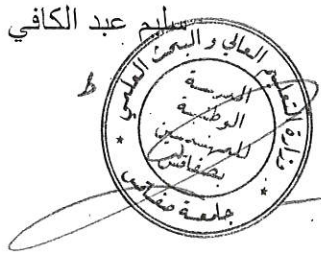 سليم عبد الكافي
وزارة التعليم العالي و البحث العلمي
المدرسة
الوطنية
للمهندسين
بصفاقس
جامعة صفاقس